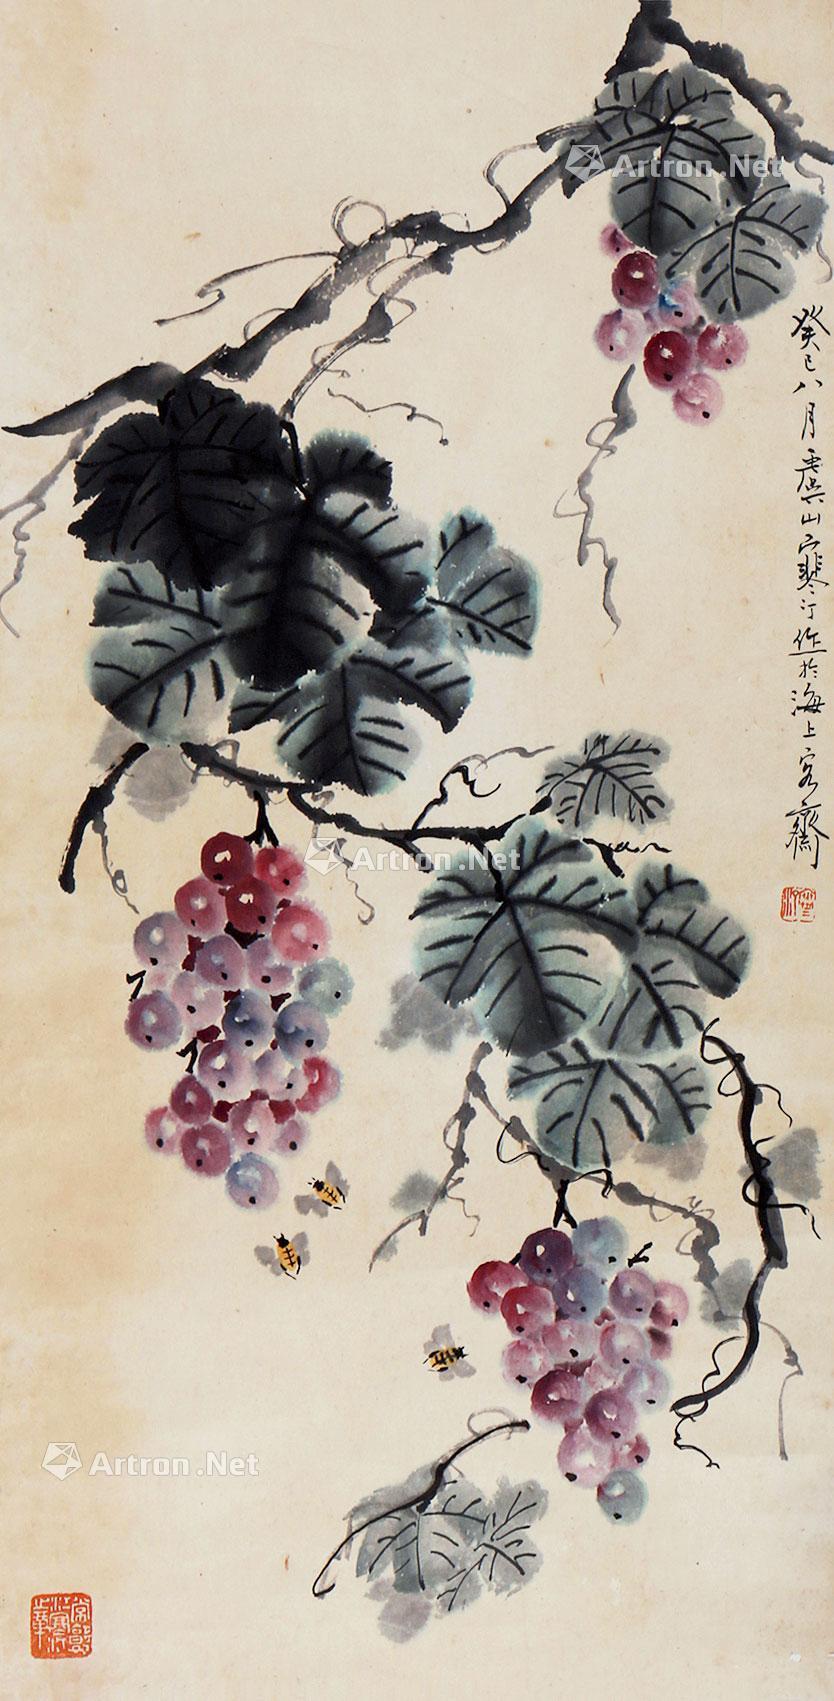 Artron.Net
癸巳八月虞山寒汀作於海上寓斋
Artron.Net
寒汀
Artron.Net